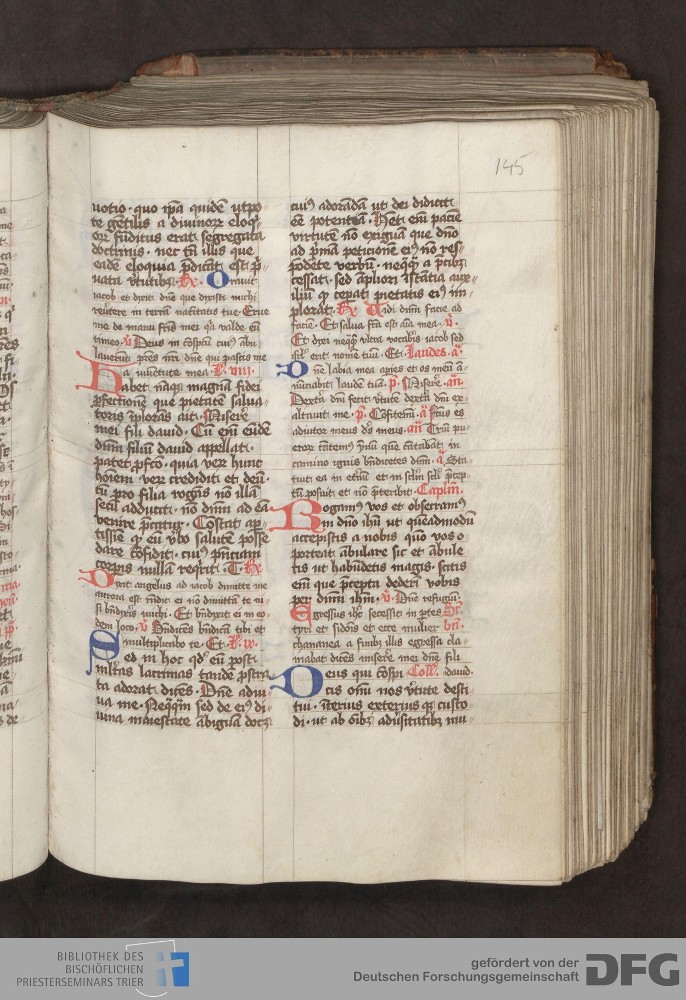 145
uotio. quo ipa quidē utpo-
te gētilis a diuinorꝝ eloq-
orꝝ fūditus erat segregata
doctrinis. nec tn̄ illis que
eadē eloquia p̄dicāt est p̄-
uata v̓tutibꝫ. Rx. Orauit
iacob et dixit dn̄e que dixisti michi
reuertere in terrā natiuitatis tue. Erue
me de manu fris mei qꝛ valde eū
timeo. v̓ Deus in ꝯspcū cuiꝰ abu-
lauerūt patres mi dn̄e qui pascis me
a iuuētute mea. L. viii.
Habet nāqꝫ magnā fidei
ꝑfectionē que pietatē salua-
toris iplorās ait. Misere
mei fili dauid. Cū em̄ eūdē
dn̄m filiū dauid appellat.
patet ꝓfcō. quia verꝫ hunc
hoīem verꝫ credidit et deū.
cū pro filia rogās nō illā
secū adduxit. nō dn̄m ad eā
venire p̄catur. Cōstat aꝑ-
tissīe qꝫ eū v̓bo salutē posse
dare cōfidit. cuiꝰ p̄ntiam
corpis nullā reqrit. T. Rx.
Dixit angelus ad iacob dimitte me
aurora est rn̄dit ei nō dimittā te ni-
si bn̄dixis michi. Et bn̄dixit ei in eo-
dem loco. v̓ Bn̄dicēs bn̄dicā tibi et
multiplicabo te. Et. L. ix.
Sed in hoc qd̓ eū post
multas lacrimas tandē pstra-
ta adorat dicēs. Dn̄e adiu-
ua me. Neqꝫ̄m sed de eiꝰ di-
uina maiestate ābiguā docꝫ
cuiꝰ adorādā ut dei didicit
eē potentiā. Hꝫ et em̄ paciē
virtutē nō exiguā que dn̄o
ad pmā peticionē eiꝰ nō res-
pōdēte verbū. neqꝫqͣ a pcibꝫ
cessat. sed āpliori istātia auxi-
liū qd̓ cepat pietatis eiꝰ im-
plorat. Rx. Uidi dn̄m facie ad
faciē. Et salua fcā est aīa mea. v̓.
Et dixit neqꝫ ultra vocabis iacob sed
isrl̓ erit nomē tuū. Et. Laudes. ā.
Dn̄e labia mea apies et os meū ā-
nūciabit laudē tuā. p̓. Miserē. añ.
Dexta dn̄i fecit v̓tutē dexta dn̄i ex-
altauit me. p̓. Cōfitem̄. ā fcūs es
adiutor meus ds̓ meus. añ Triū pu-
erorꝝ cātem̄ ymū quē cātabāt in
camino ignis bn̄dicētes dn̄m. ā Sta-
tuit ea in etnū et in sclm̄ scl̓i p̄cep-
tū posuit et nō p̄teribit. Caplm̄.
Rogamꝰ vos et obsecramꝰ
in dn̄o ihū ut quēadmodū
accepistis a nobis quō vos o-
porteat ābulare sic et ābule-
tis ut habūdetis magis. scitis
em̄ que p̄cepta dederī vobis
per dn̄m ihm̄. v̓. Dn̄e refugiū.
Egressus ihc̄ secessit in ꝑtes
tyri et sidōis et ecce mulier
chananea a finibꝫ illis egressa cla-
mabat dicēs miserē mei dn̄e fili
Deus qui cōspi Coll̓. dauid.
cis omī nos v̓tute desti-
tui. īterius exteriusqꝫ custo-
di. ut ab oībꝫ adu̓sitatibꝫ mu-
BIBLIOTHEK DES
BISCHÖFLICHEN
PRIESTERSEMINARS TRIER
gefördert von der
Deutschen Forschungsgemeinschaft
DFG